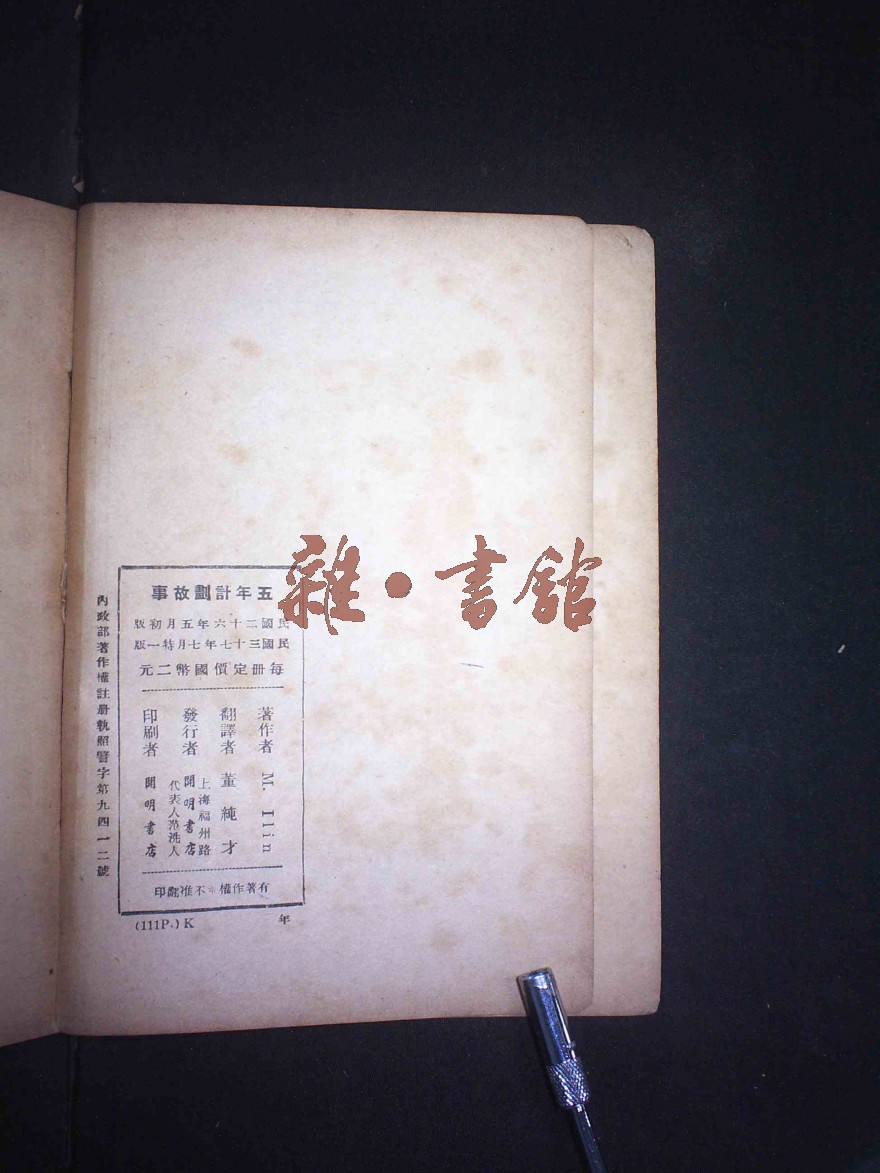 五年計劃故事
民國二十六年五月初版
民國三十七年七月特一版
每冊定價國幣二元
著作者 M. Ilin
翻譯者 董純才
發行者 上海福州路 開明書店 代表人范洗人
印刷者 開明書店
有著作權不准翻印
內政部著作權註册執照警字第九四一二號
(111P.) K
年
雜·書館